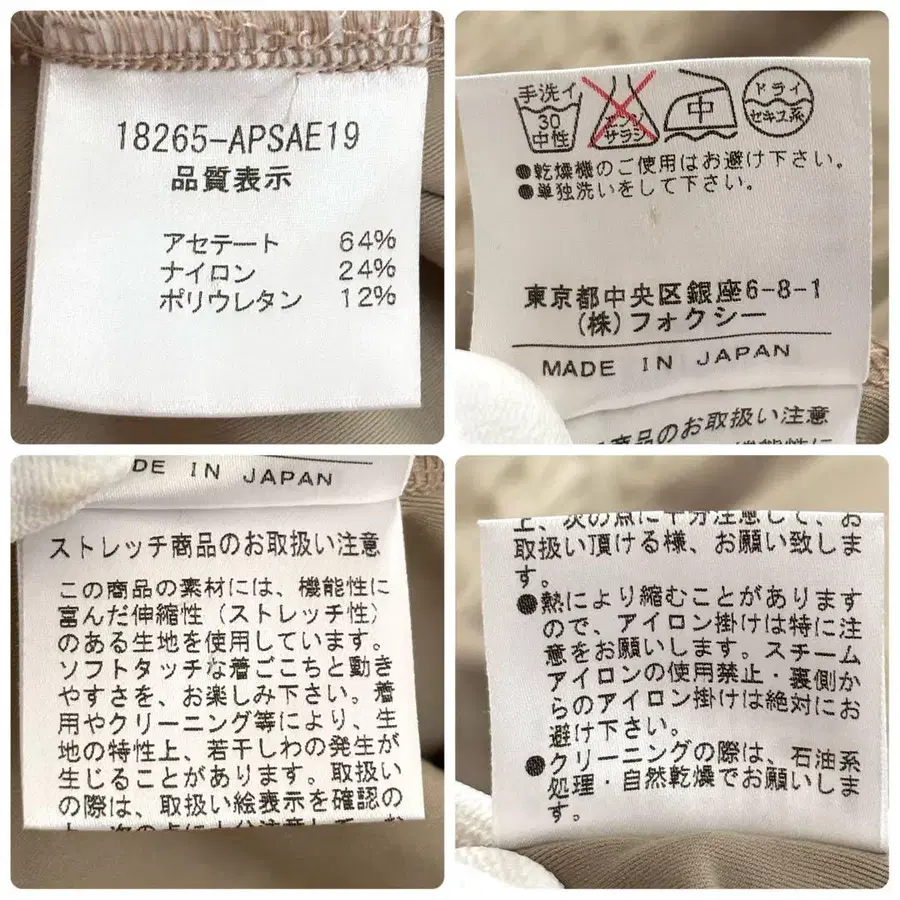 18265-APSAE19
品質表示
アセテート 64%
ナイロン 24%
ポリウレタン 12%
手洗イ
30
中性
エンソ
サラシ
中
ドライ
セキユ系
●乾燥機のご使用はお避け下さい。
●単独洗いをして下さい。
東京都中央区銀座6-8-1
(株)フォクシー
MADE IN JAPAN
商品のお取扱い注意
DE IN JAPAN
ストレッチ商品のお取扱い注意
この商品の素材には、機能性に
富んだ伸縮性(ストレッチ性)
のある生地を使用しています。
ソフトタッチな着ごこちと動き
やすさを、お楽しみ下さい。着
用やクリーニング等により、生
地の特性上、若干しわの発生が
生じることがあります。取扱い
の際は、取扱い絵表示を確認の
上、次の点に十分注意して、お
上、次の点に十分注意して、お
取扱い頂ける様、お願い致しま
す。
●熱により縮むことがあります
ので、アイロン掛けは特に注
意をお願いします。スチーム
アイロンの使用禁止・裏側か
らのアイロン掛けは絶対にお
避け下さい。
●クリーニングの際は、石油系
処理・自然乾燥でお願いしま
す。